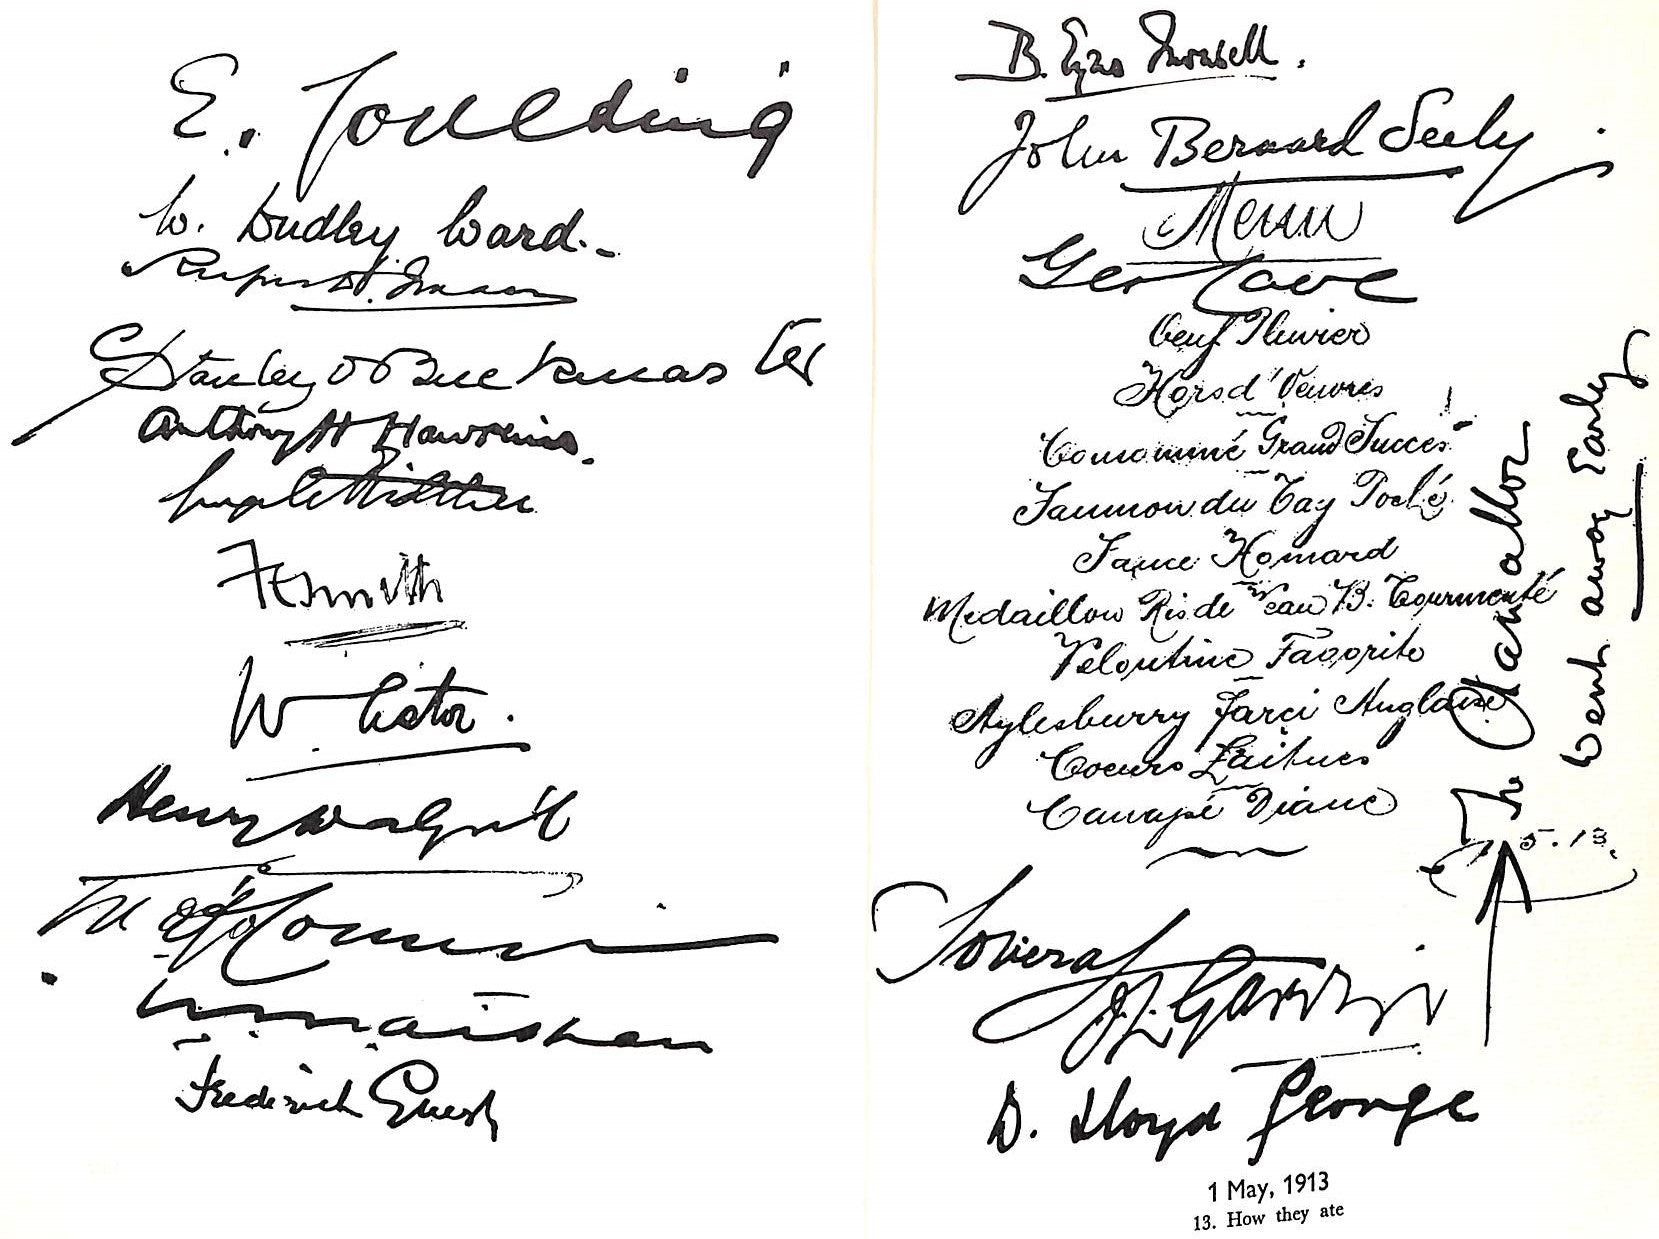 E. Goulding
W. Dudley Ward.
Rupert
Stanley O Buckmaster
Anthony H Hawkins.
FE Smith
W. Astor.
Henry Dalziel
T. P. O'Connor
Frederick Guest
B. Eyres Monsell.
John Bernard Seely
Menu
Geo Cave
Oeuf Pluvier
Hors d'Oeuvres
Consommé Grand Succes
Saumon du Tay Poché
Sauce Homard
Medaillon Ris de Veau B. Tourmenté
Veloutine Favorite
Aylesburry Farci Anglaise
Coeurs Laitues
Canapé Diane
5. 13.
Soveral
J. L. Garvin
D. Lloyd George
The Chancellor
went away Early
1 May, 1913
13. How they ate